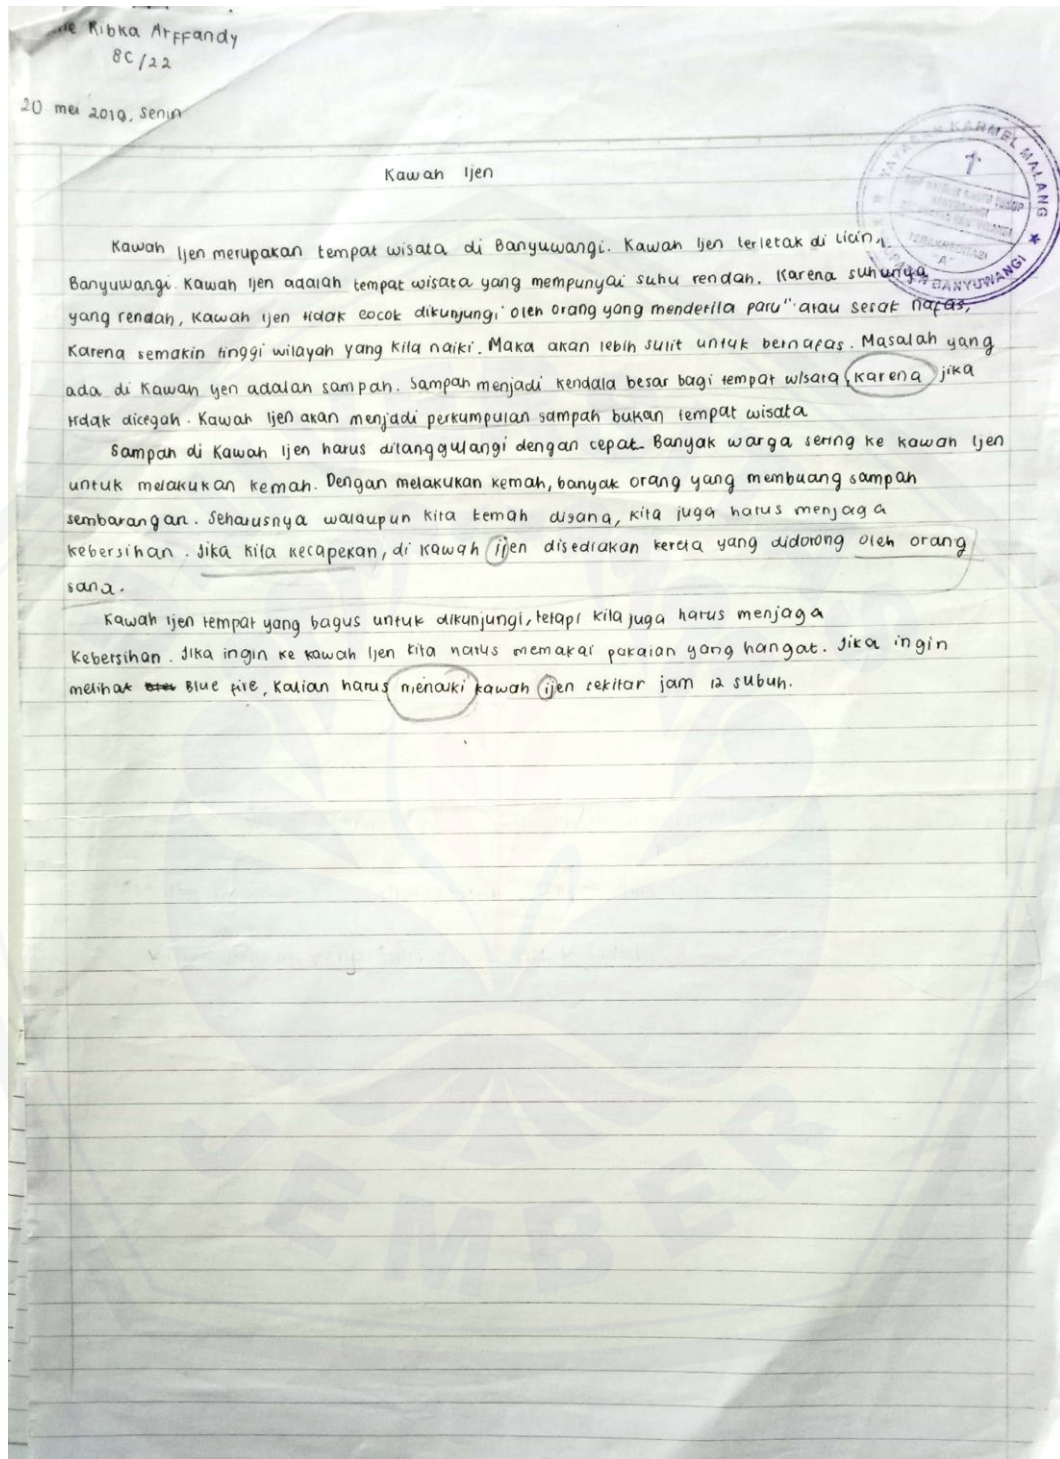 Ribka Arffandy
8C/22
20 mei 2019, Senin
YAYASAN KARMEL MALANG
TERAKREDITASI
"A"
BANYUWANGI
Kawah Ijen
Kawah Ijen merupakan tempat wisata di Banyuwangi. Kawah Ijen terletak di Licin,
Banyuwangi. Kawah Ijen adalah tempat wisata yang mempunyai suhu rendah. Karena suhunya
yang rendah, Kawah Ijen tidak cocok dikunjungi oleh orang yang menderita paru" atau sesak nafas,
Karena semakin tinggi wilayah yang kita naiki. Maka akan lebih sulit untuk bernafas. Masalah yang
ada di Kawah Ijen adalah sampah. Sampah menjadi kendala besar bagi tempat wisata, karena jika
tidak dicegah. Kawah Ijen akan menjadi perkumpulan sampah bukan tempat wisata
Sampah di Kawah Ijen harus ditanggulangi dengan cepat. Banyak warga sering ke kawah Ijen
untuk melakukan kemah. Dengan melakukan kemah, banyak orang yang membuang sampah
sembarangan. Seharusnya walaupun kita kemah disana, kita juga harus menjaga
kebersihan. Jika kita kecapekan, di kawah ijen disediakan kereta yang didorong oleh orang
sana.
Kawah Ijen tempat yang bagus untuk dikunjungi, tetapi kita juga harus menjaga
Kebersihan. Jika ingin ke kawah Ijen kita harus memakai pakaian yang hangat. Jika ingin
melihat Blue fire, Kalian harus menaiki kawah ijen sekitar jam 12 subuh.
JEMBER